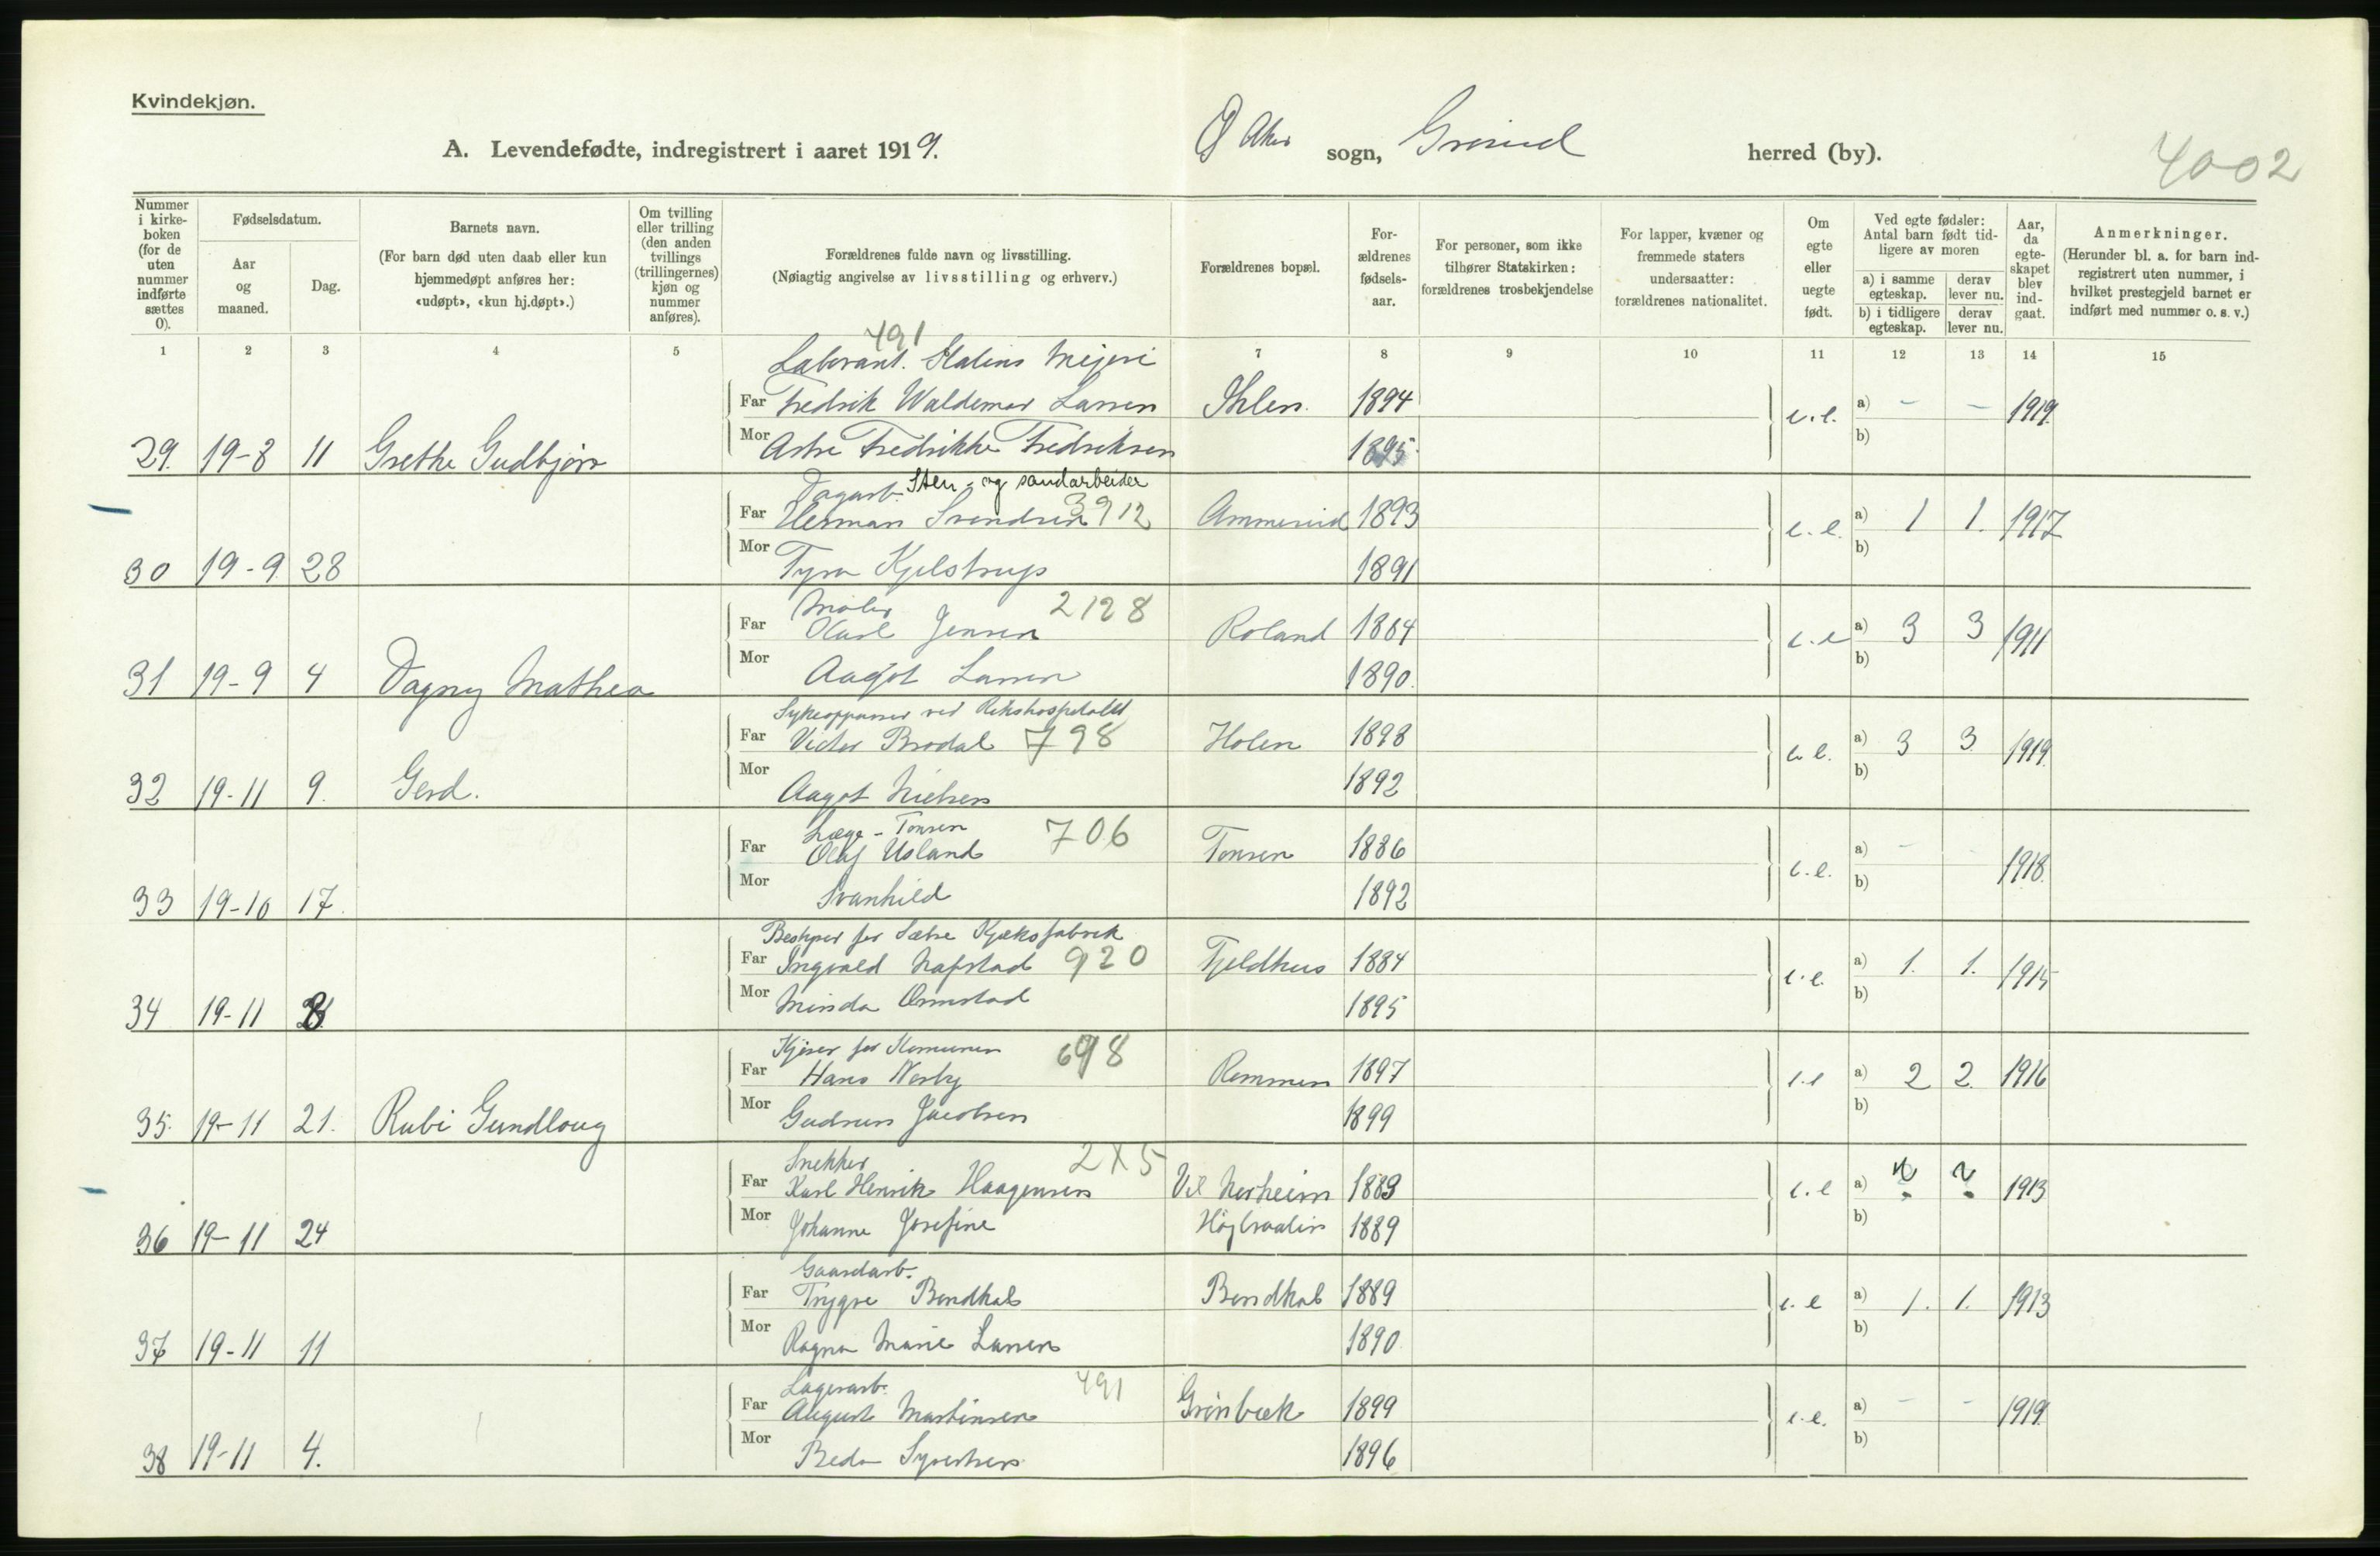 Kvindekjøn.
A. Levendefødte, indregistrert i aaret 1919.
Ø Aker sogn, Grorud herred (by).
4002
Nummer i kirkeboken (for de uten nummer indførte sættes 0).
Fødselsdatum.
Aar og maaned.
Dag.
Barnets navn.
(For barn død uten daab eller kun hjemmedøpt anføres her: «udøpt», «kun hj.døpt».)
Om tvilling eller trilling (den anden tvillings (trillingernes) kjøn og nummer anføres).
Forældrenes fulde navn og livsstilling.
(Nøiagtig angivelse av livsstilling og erhverv.)
Forældrenes bopæl.
Forældrenes fødselsaar.
For personer, som ikke tilhører Statskirken: forældrenes trosbekjendelse
For lapper, kvæner og fremmede staters undersaatter: forældrenes nationalitet.
Om egte eller uegte født.
Ved egte fødsler: Antal barn født tidligere av moren
a) i samme egteskap.
derav lever nu.
b) i tidligere egteskap.
derav lever nu.
Aar, da egteskapet blev indgaat.
Anmerkninger.
(Herunder bl. a. for barn indregistrert uten nummer, i hvilket prestegjeld barnet er indført med nummer o. s. v.)
1 2 3 4 5 7 8 9 10 11 12 13 14 15
491
Laborant. Mejeri
Far Fredrik Waldemar Larsen 1894 e.e. a) - - 1919.
29. 19-8 11 Grethe Gudbjørr Mor Fredrikke Fredriksen 1895 b)
Dagarb. Sten- og sandarbeider
Far Herman Svendsen 3912 Ammerud 1893 e.e. a) 1 1. 1917
30 19-9 28 Mor Tyra Kjelstrup 1891 b)
Maler 2128
Far Karl Jensen Roland 1884 e.e a) 3 3 1911
31 19-9 4 Dagny Mathea Mor Aagot Larsen 1890. b)
Sykeopparser ved Rikshospitalet
Far Victor Brodal 798 Holen 1898 e.e. a) 3 3 1919.
32 19-11 9. Gerd. Mor Aagot Nielsen 1892 b)
Læge - Tonsen 706
Far Olaf Usland Tonsen 1886 e.e. a) - - 1918.
33 19-10 17. Mor Svanhild 1892 b)
Bestyrer for Sætre Kjæksfabrik
Far Ingvald Nafstad 920 Fjeldhus 1884 e.e. a) 1. 1. 1915
34 19-11 Mor Minda Ormstad 1895 b)
Kjører for Komunen 698
Far Hans Nesby Rommen 1897 e.e a) 2 2. 1916
35. 19-11 21. Rubi Gundloug Mor Gudrun Jacobsen 1899 b)
Snekker
Far Karl Henrik Haagensen Norheim 1889 e.e a) 2 2 1913
36 19-11 24 Mor Johanne Josefine Højbraaten 1889 b)
Gaardarb.
Far Trygve Bendhal Bendhal 1889 e.e a) 1. 1. 1913
37 19-11 11 Mor Ragna Marie Larsen 1890 b)
Lagerarb. 491
Far August Martinsen Grinbæk 1899 e.e. a) - - 1919.
38 19-11 4. Mor Beda Syvertsen 1896 b)